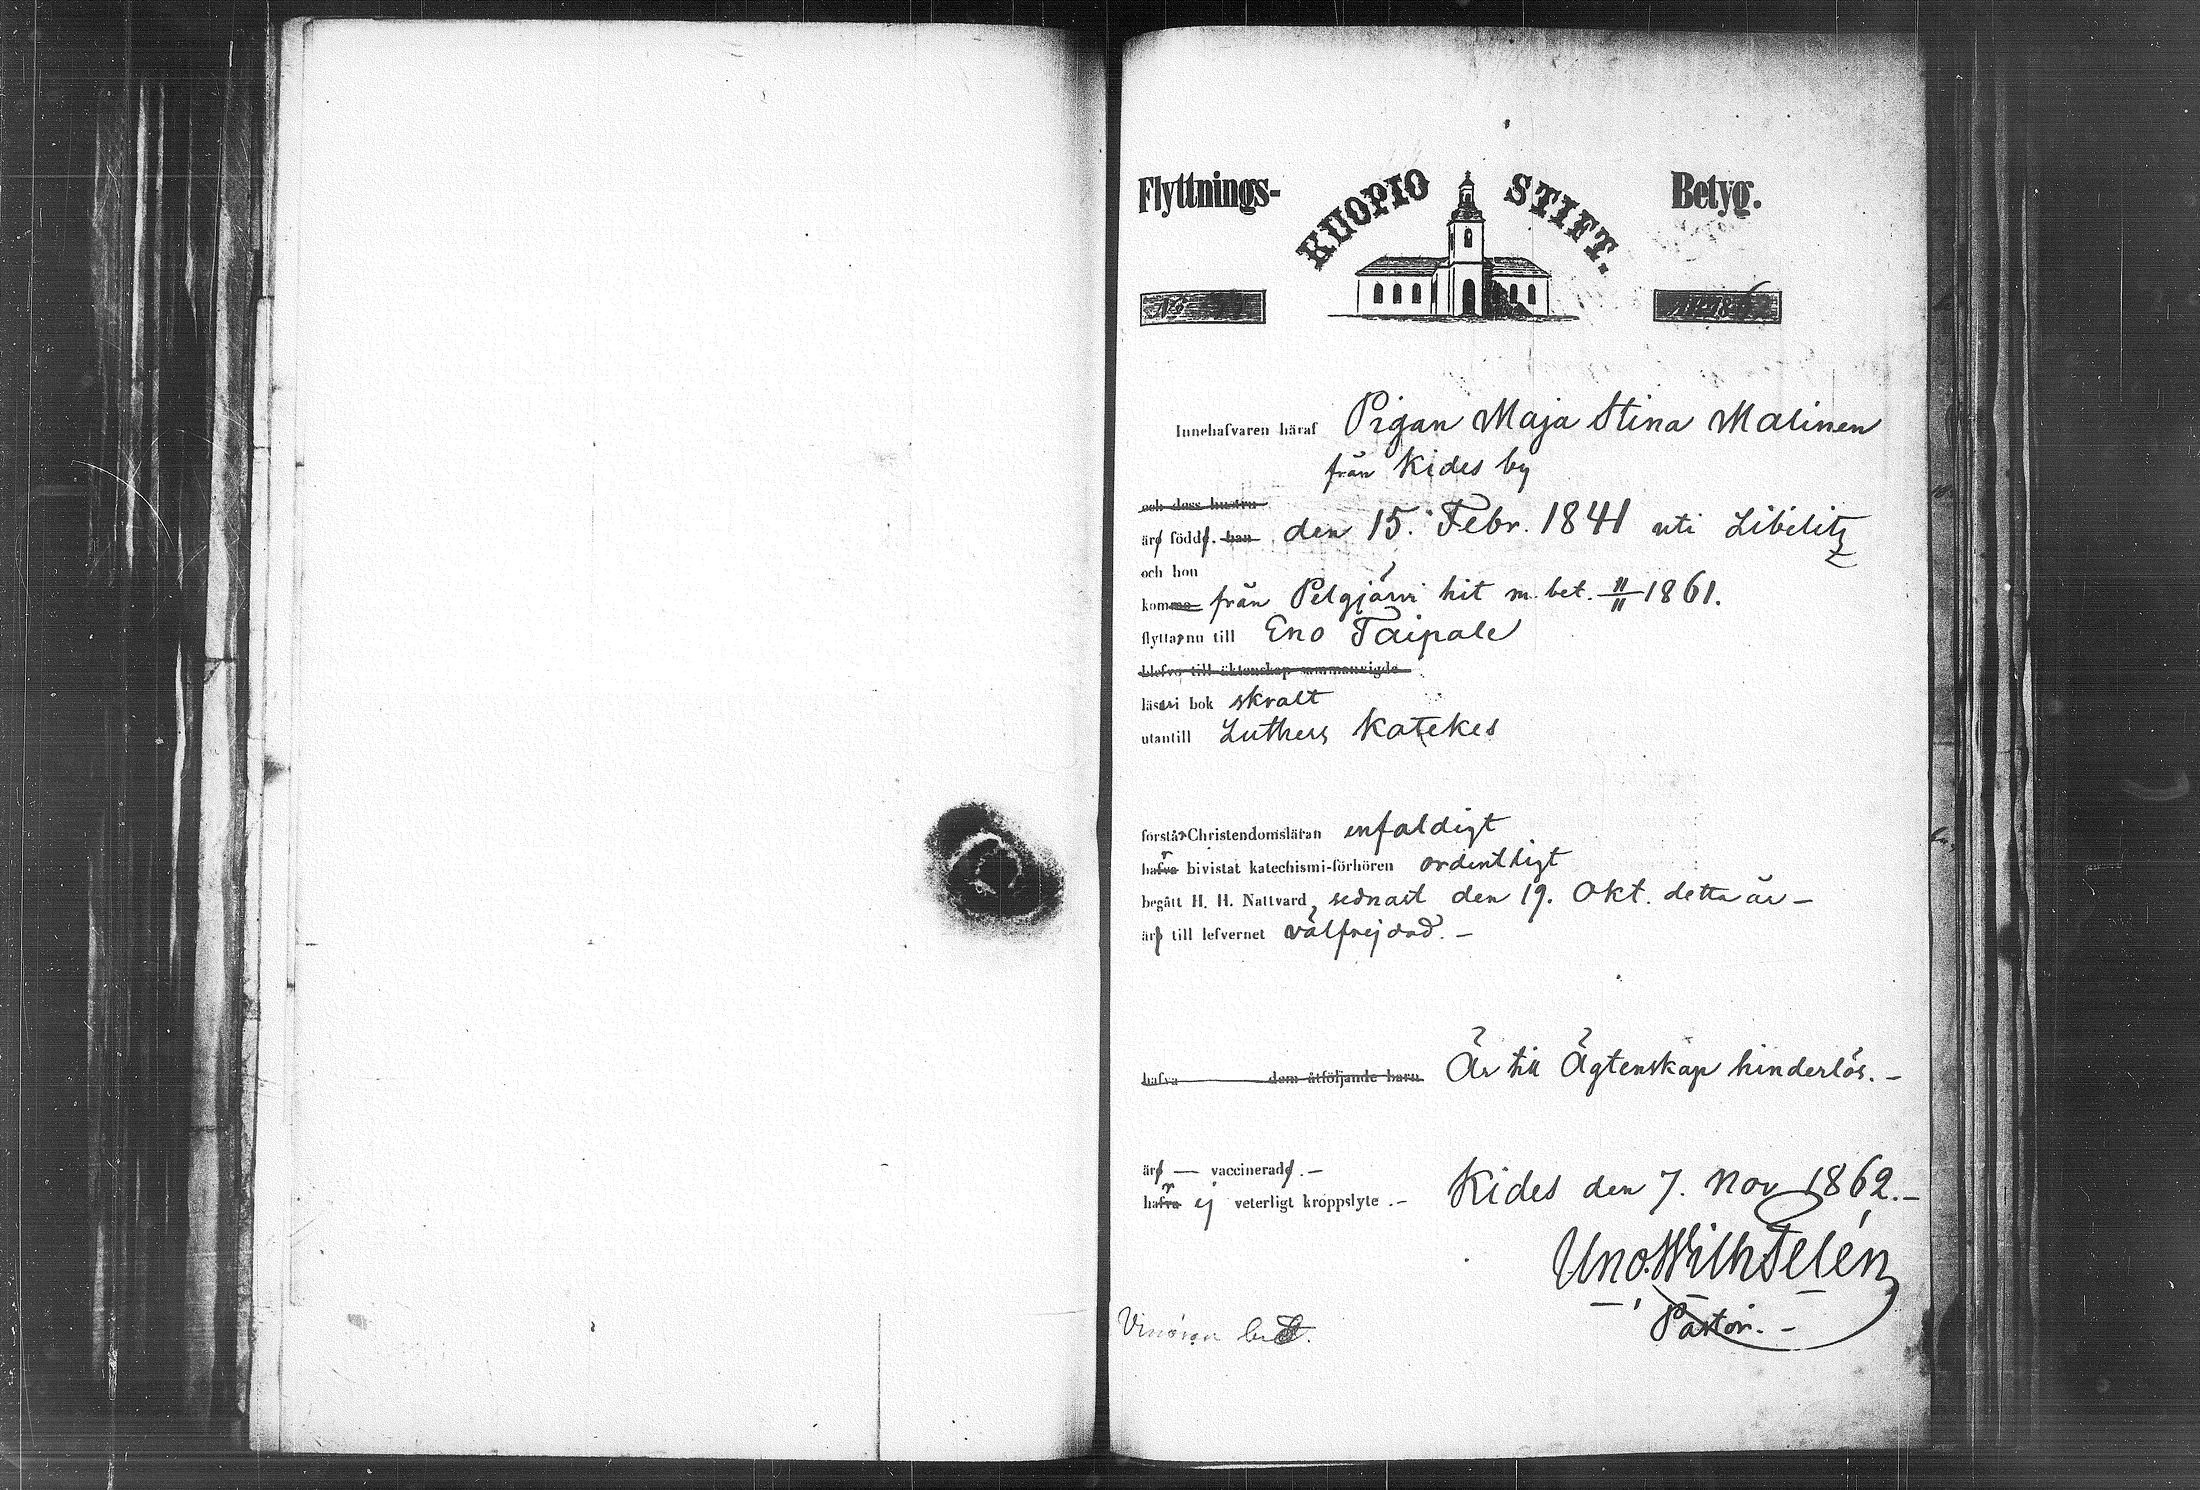 Flyttnings- KUOPIO STIFT. Betyg.
No
Innehafvaren häraf Pigan Maja Stina Malinen
från Kides by
och dess hustru
äro födde. han den 15. Febr. 1841 uti Libelitz
och hon
komma från Pelgjärvi hit m. bet. 11/11 1861.
flyttar nu till Eno Taipale
blefvo till äktenskap sammanvigde
läser i bok skralt
utantill Luthers Katekes
förstår Christendomsläran enfaldigt
hafva bivistat katechismi-förhören ordentligt
begått H. H. Nattvard, sednast den 19. Okt. detta år –
äro till lefvernet välfrejdad. –
hafva dem åtföljande barn Är till Ägtenskap hinderlös. –
äro — vaccinerade. –
hafva ej veterligt kroppslyte. – Kides den 7. Nov 1862. –
Uno. Wilh Telén
Pastor. –